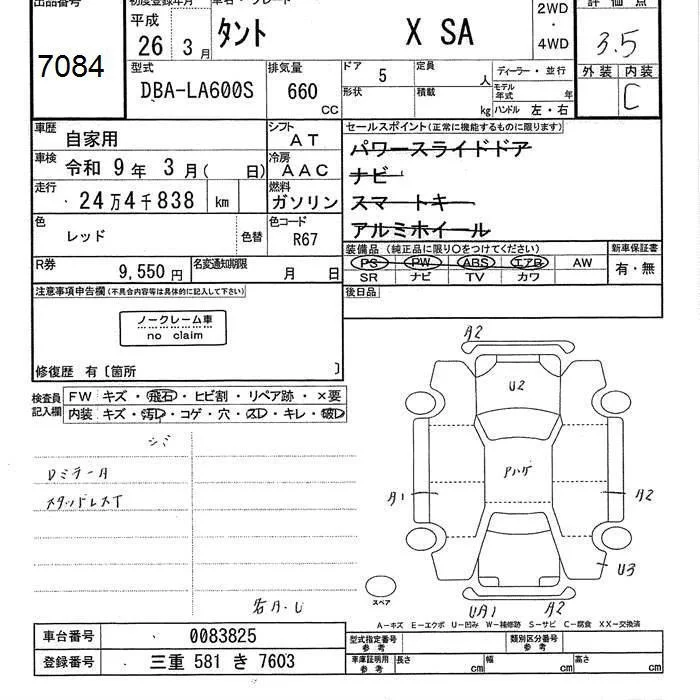 出品番号
7084
初度登録年月
平成
26 3月
車名・グレード
タント X SA
2WD
・
4WD
評価点
3.5
外装 内装
C
型式
DBA-LA600S
排気量
660
CC
ドア 5
形状
定員 人
積載 kg
ディーラー・並行
モデル年式 年
ハンドル 左・右
車歴
自家用
シフト
AT
車検
令和 9年 3月( 日)
冷房
AAC
走行
24万4千838 km
燃料
ガソリン
色
レッド
色替
色コード
R67
R券
9,550円
名変通知期限
月 日
セールスポイント(正常に機能するものに限ります)
パワースライドドア
ナビ
スマートキー
アルミホイール
装備品(純正品に限り○をつけてください)
PS PW ABS エアB AW
SR ナビ TV カワ
新車保証書
有・無
後日品
注意事項申告欄(不具合内容等は具体的に記入して下さい)
ノークレーム車
no claim
修復歴 有〔箇所 〕
検査員
記入欄
FW キズ・飛石・ヒビ割・リペア跡・×要
内装 キズ・汚レ・コゲ・穴・スレ・キレ・破レ
シミ
DミラーA
スタッドレスT
各A.U
A2
U2
アハゲ
A1
A2
U3
UA1
A2
スペア
A－キズ E－エクボ U－凹み W－補修跡 S－サビ C－腐食 XX－交換済
車台番号
0083825
登録番号
三重 581 き 7603
型式指定番号
参考
類別区分番号
参考
車庫証明用
参考
長さ cm
幅 cm
高さ cm